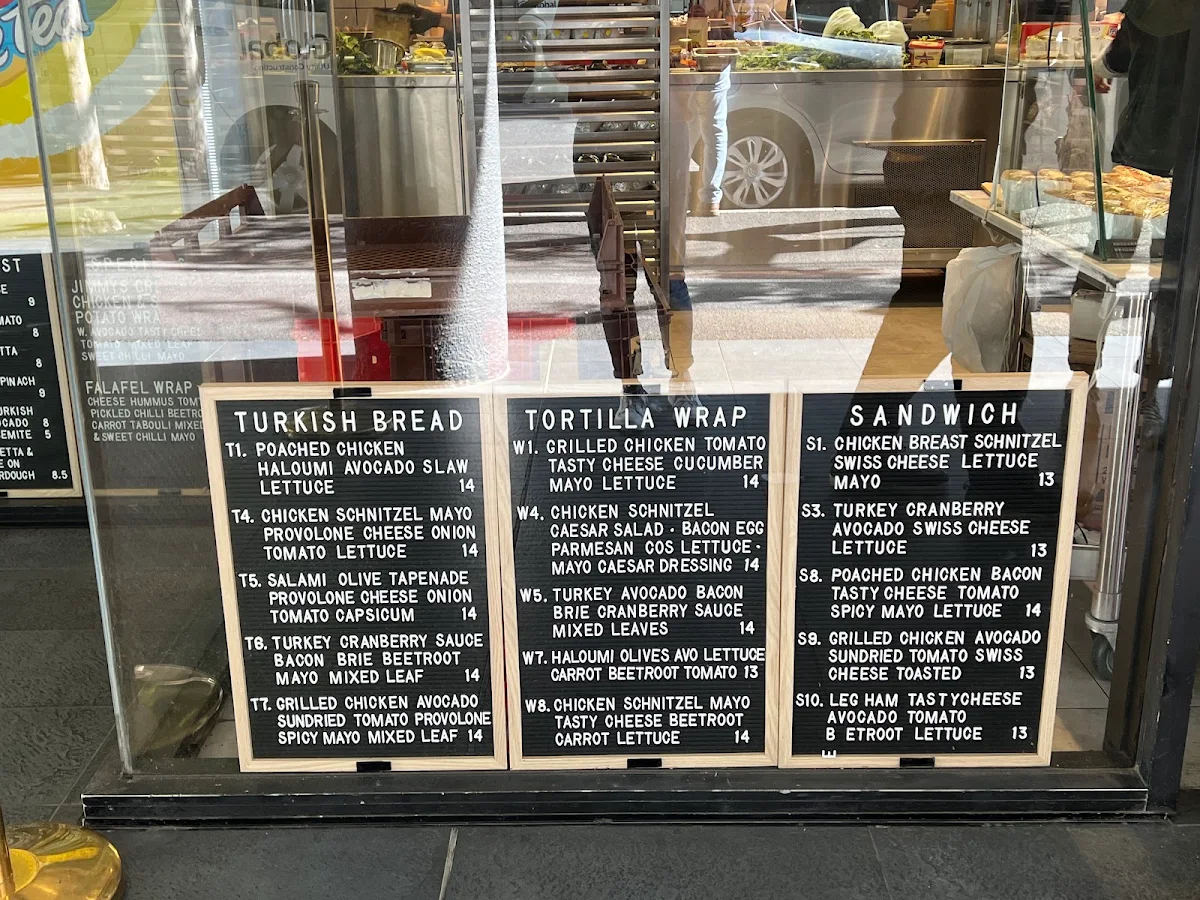 Tea
Global
ST
E
9
MATO
8
ETTA
8
SPINACH
9
URKISH
OCADO 8
GEMITE 5
ETTA &
E ON
RDOUGH 8.5
JIMMYS
CHICKEN &
POTATO WRA
W. AVOCADO TASTY
SWEET CHILLI MAYO
FALAFEL WRAP
CHEESE HUMMUS TOM
PICKLED CHILLI BEETRO
CARROT TABOULI MIXED
& SWEET CHILLI MAYO
TURKISH BREAD
T1. POACHED CHICKEN
HALOUMI AVOCADO SLAW
LETTUCE 14
T4. CHICKEN SCHNITZEL MAYO
PROVOLONE CHEESE ONION
TOMATO LETTUCE 14
T5. SALAMI OLIVE TAPENADE
PROVOLONE CHEESE ONION
TOMATO CAPSICUM 14
T6. TURKEY CRANBERRY SAUCE
BACON BRIE BEETROOT
MAYO MIXED LEAF 14
T7. GRILLED CHICKEN AVOCADO
SUNDRIED TOMATO PROVOLONE
SPICY MAYO MIXED LEAF 14
TORTILLA WRAP
W1. GRILLED CHICKEN TOMATO
TASTY CHEESE CUCUMBER
MAYO LETTUCE 14
W4. CHICKEN SCHNITZEL
CAESAR SALAD - BACON EGG
PARMESAN COS LETTUCE -
MAYO CAESAR DRESSING 14
W5. TURKEY AVOCADO BACON
BRIE CRANBERRY SAUCE
MIXED LEAVES 14
W7. HALOUMI OLIVES AVO LETTUCE
CARROT BEETROOT TOMATO 13
W8. CHICKEN SCHNITZEL MAYO
TASTY CHEESE BEETROOT
CARROT LETTUCE 14
SANDWICH
S1. CHICKEN BREAST SCHNITZEL
SWISS CHEESE LETTUCE
MAYO 13
S3. TURKEY CRANBERRY
AVOCADO SWISS CHEESE
LETTUCE 13
S8. POACHED CHICKEN BACON
TASTY CHEESE TOMATO
SPICY MAYO LETTUCE 14
S9. GRILLED CHICKEN AVOCADO
SUNDRIED TOMATO SWISS
CHEESE TOASTED 13
S10. LEG HAM TASTYCHEESE
AVOCADO TOMATO
B ETROOT LETTUCE 13
E